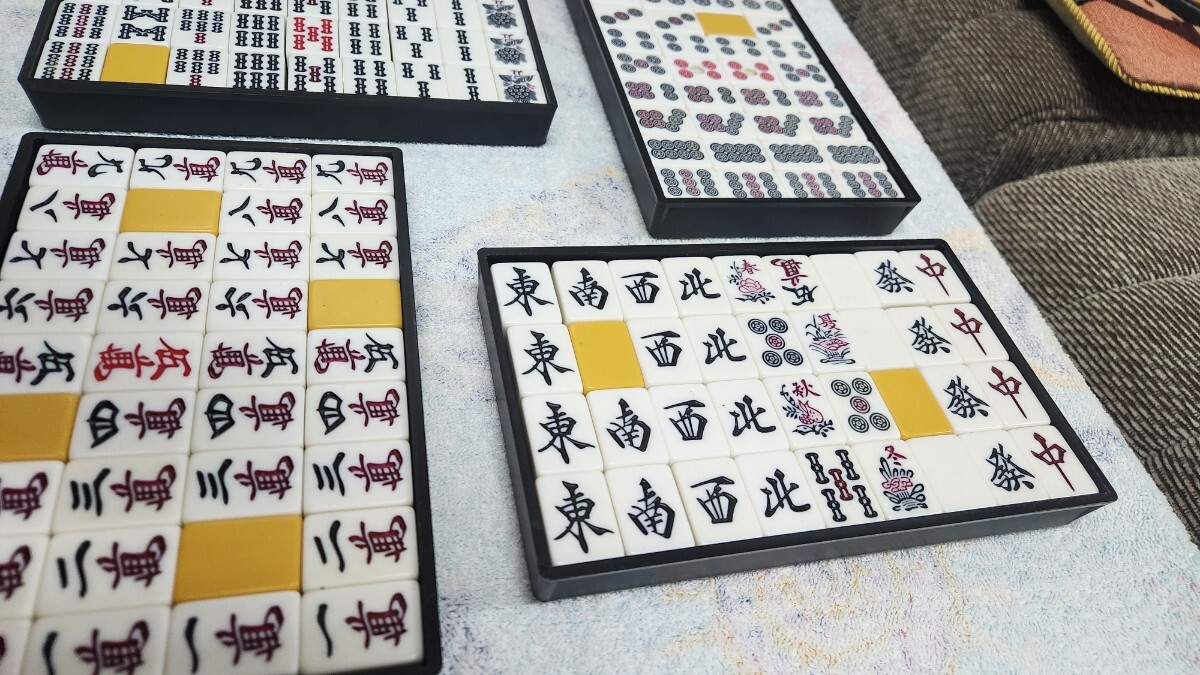 九萬 九萬 九萬 九萬
八萬 八萬 八萬
七萬 七萬 七萬 七萬
六萬 六萬 六萬 六萬
伍萬 伍萬 伍萬 伍萬
四萬 四萬 四萬
三萬 三萬 三萬
二萬 二萬
一萬 一萬 一萬
東 南 西 北 春 伍萬 發 中
東 西 北 夏 發 中
東 南 西 北 秋 發 中
東 南 西 北 冬 發 中